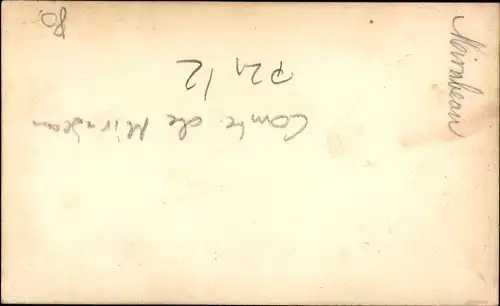 Mirabeau
Comte de Mirabeau
P21/2